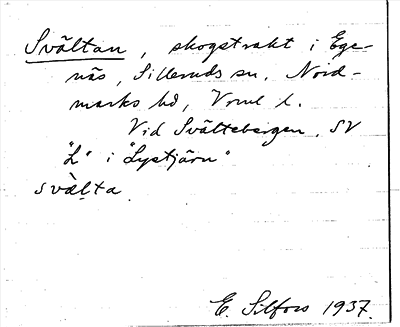 Svältan, skogstrakt i Ege-
näs, Silleruds sn, Nord-
marks hd, Vrml l.
Vid Svältebergen, SV
"L" i "Lystjärn"
svàl̥ta
E. Silfors 1937.